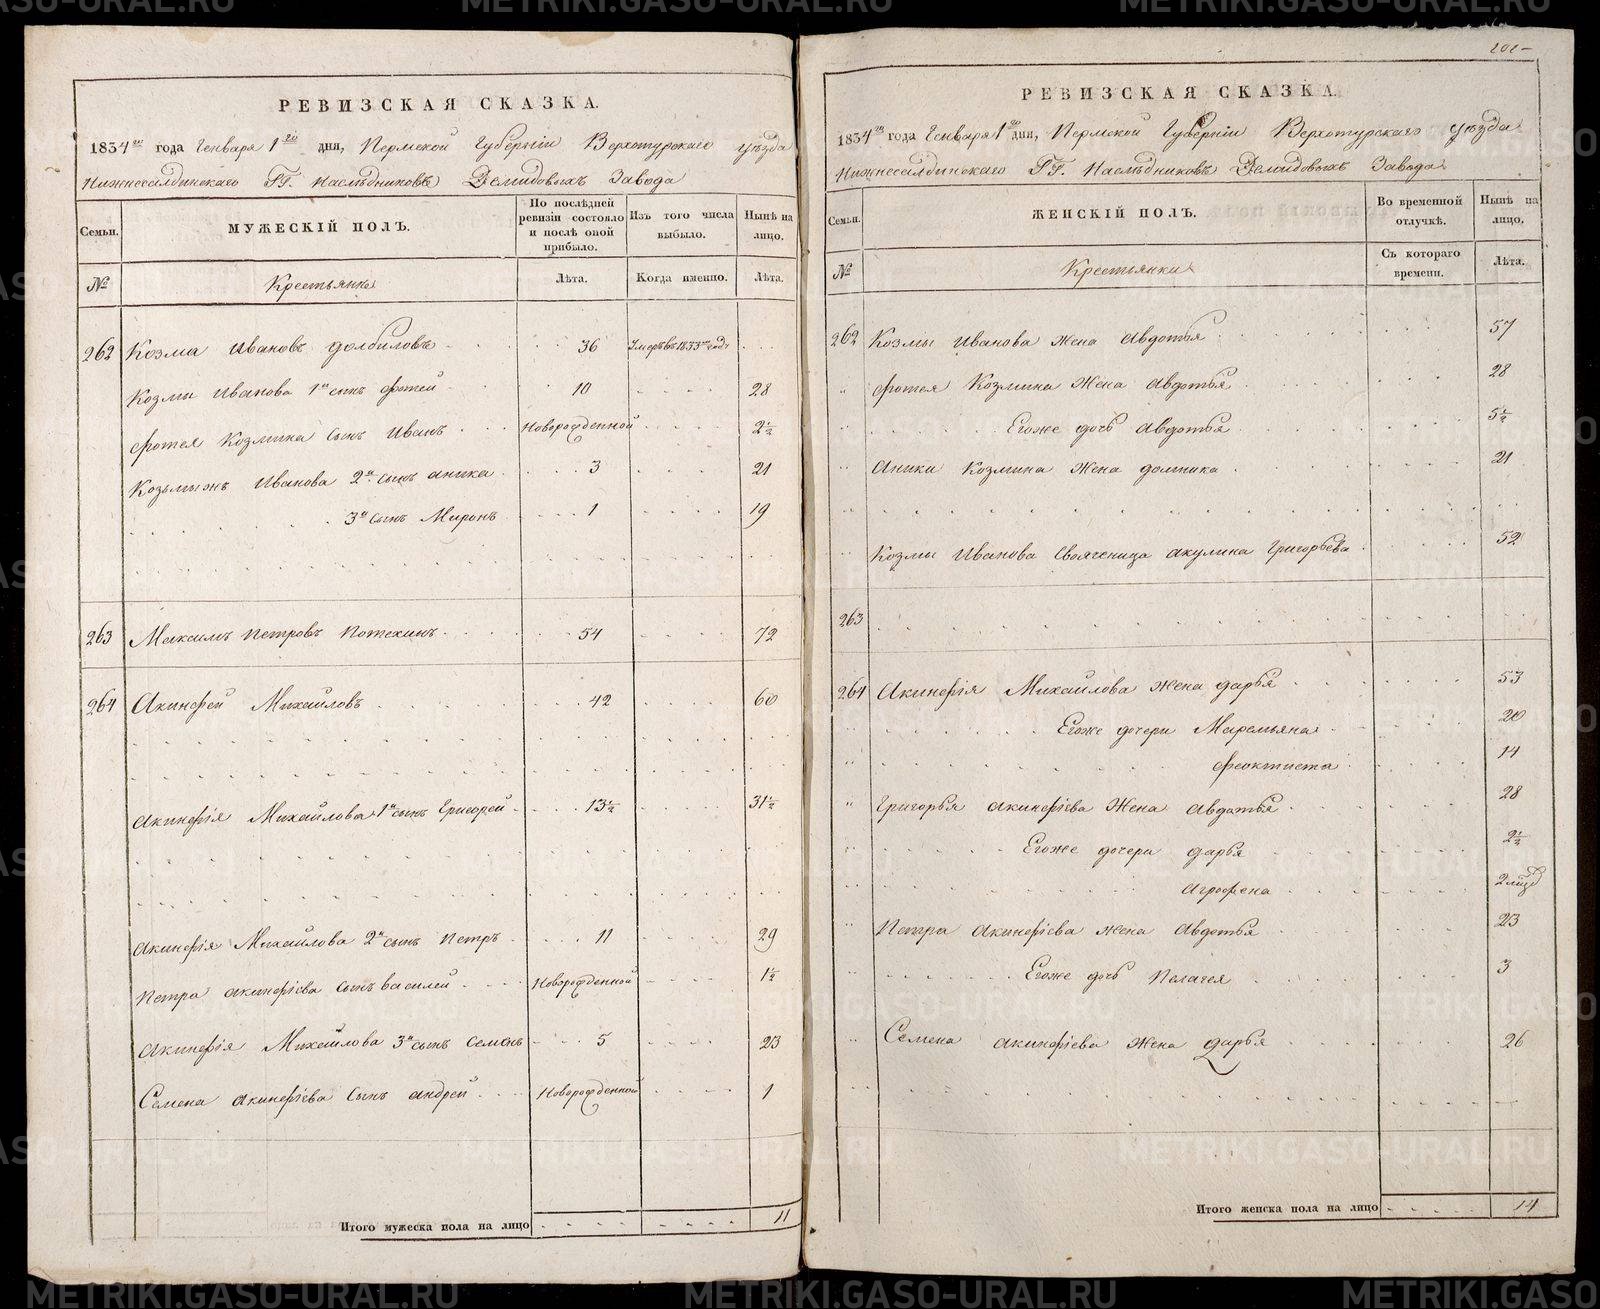 РЕВИЗСКАЯ СКАЗКА.
1834го года Генваря 1го дня, Пермской Губерніи Верхотурскаго уѣзда
Нижнесалдинскаго ГГ. Наслѣдниковъ Демидовыхъ Завода
Семьи. МУЖЕСКІЙ ПОЛЪ. По послѣдней ревизіи состояло и послѣ оной прибыло. Изъ того числа выбыло. Нынѣ на лицо.
№ Крестьяне Лѣта. Когда именно. Лѣта.
262 Козма Ивановъ Долбиловъ 36 Умеръ въ 1833м году
Козмы Иванова 1й сынъ Фотей 10 28
Фотея Козмина сынъ Иванъ Новорожденной 2½
Козьмы жъ Иванова 2й сынъ Аника 3 21
3й сынъ Миронъ 1 19
263 Максимъ Петровъ Потехинъ 54 72
264 Акинфей Михайловъ 42 60
Акинфія Михайлова 1й сынъ Григорей 13½ 31½
Акинфія Михайлова 2й сынъ Петръ 11 29
Петра Акинфіева сынъ Василей Новорожденной 1½
Акинфія Михайлова 3й сынъ Семенъ 5 23
Семена Акинфіева сынъ Андрей Новорожденной 1
Итого мужеска пола на лицо 11
РЕВИЗСКАЯ СКАЗКА.
1834го года Генваря 1го дня, Пермской Губерніи Верхотурскаго уѣзда
Нижнесалдинскаго ГГ. Наслѣдниковъ Демидовыхъ Завода
Семьи. ЖЕНСКІЙ ПОЛЪ. Во временной отлучкѣ. Нынѣ на лицо.
№ Крестьянки Съ котораго времени. Лѣта.
262 Козмы Иванова жена Авдотья 57
Фотея Козмина жена Авдотья 28
Егоже дочь Авдотья 5½
Аники Козмина жена Домника 21
Козмы Иванова свояченица Акулина Григорьева 52
263
264 Акинфія Михайлова жена Дарья 53
Егоже дочери Маремьяна 20
Феоктиста 14
Григорья Акинфіева жена Авдотья 28
Егоже дочери Дарья 2½
Агрофена
Петра Акинфіева жена Авдотья 23
Егоже дочь Пелагея 3
Семена Акинфіева жена Дарья 26
Итого женска пола на лицо 14
METRIKI.GASO-URAL.RU